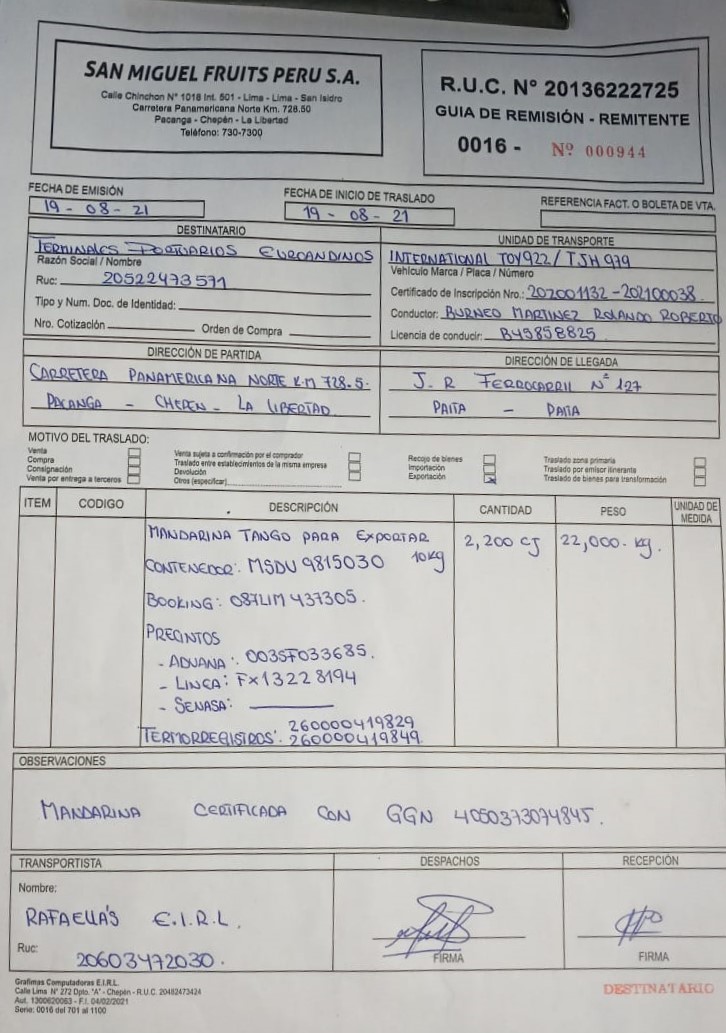 SAN MIGUEL FRUITS PERU S.A.
Calle Chinchon N° 1018 Int. 501 - Lima - Lima - San Isidro
Carretera Panamericana Norte Km. 728.50
Pacanga - Chepén - La Libertad
Teléfono: 730-7300
R.U.C. N° 20136222725
GUIA DE REMISIÓN - REMITENTE
0016 - Nº 000944
FECHA DE EMISIÓN
19 - 08 - 21
FECHA DE INICIO DE TRASLADO
19 - 08 - 21
REFERENCIA FACT. O BOLETA DE VTA.
DESTINATARIO
TERMINALES PORTUARIOS EUROANDINOS
Razón Social / Nombre
Ruc: 20522473571
Tipo y Num. Doc. de Identidad:
Nro. Cotización Orden de Compra
UNIDAD DE TRANSPORTE
INTERNATIONAL TOY922 / TJH 979
Vehículo Marca / Placa / Número
Certificado de Inscripción Nro.: 202001132-202100038.
Conductor: BURNEO MARTINEZ ROLANDO ROBERTO
Licencia de conducir: B45858825
DIRECCIÓN DE PARTIDA
CARRETERA PANAMERICANA NORTE KM 728.5.
PACANGA - CHEPEN - LA LIBERTAD.
DIRECCIÓN DE LLEGADA
J.R FERROCARRIL N° 127
PAITA - PAITA
MOTIVO DEL TRASLADO:
Venta
Compra
Consignación
Venta por entrega a terceros
Venta sujeta a confirmación por el comprador
Traslado entre establecimientos de la misma empresa
Devolución
Otros (especificar)
Recojo de bienes
Importación
Exportación
Traslado zona primaria
Traslado por emisor itinerante
Traslado de bienes para transformación
ITEM CODIGO DESCRIPCIÓN CANTIDAD PESO UNIDAD DE MEDIDA
MANDARINA TANGO PARA EXPORTAR 2,200 CJ 22,000. kg.
CONTENEDOR: MSDU 9815030 10kg
BOOKING: 087LIM437305.
PRECINTOS
- ADUANA: 003SF033685.
- LINEA: FX13228194
- SENASA:
260000419829
TERMORREGISTROS: 260000419849.
OBSERVACIONES
MANDARINA CERTIFICADA CON GGN 4050373074845.
TRANSPORTISTA
Nombre:
RAFAELLA'S E.I.R.L.
Ruc: 20603472030.
DESPACHOS
FIRMA
RECEPCIÓN
FIRMA
Grafimas Computadoras E.I.R.L.
Calle Lima N° 272 Dpto. "A" - Chepén - R.U.C. 20482473424
Aut. 1300620063 - F.I. 04/02/2021
Serie: 0016 del 701 al 1100
DESTINATARIO